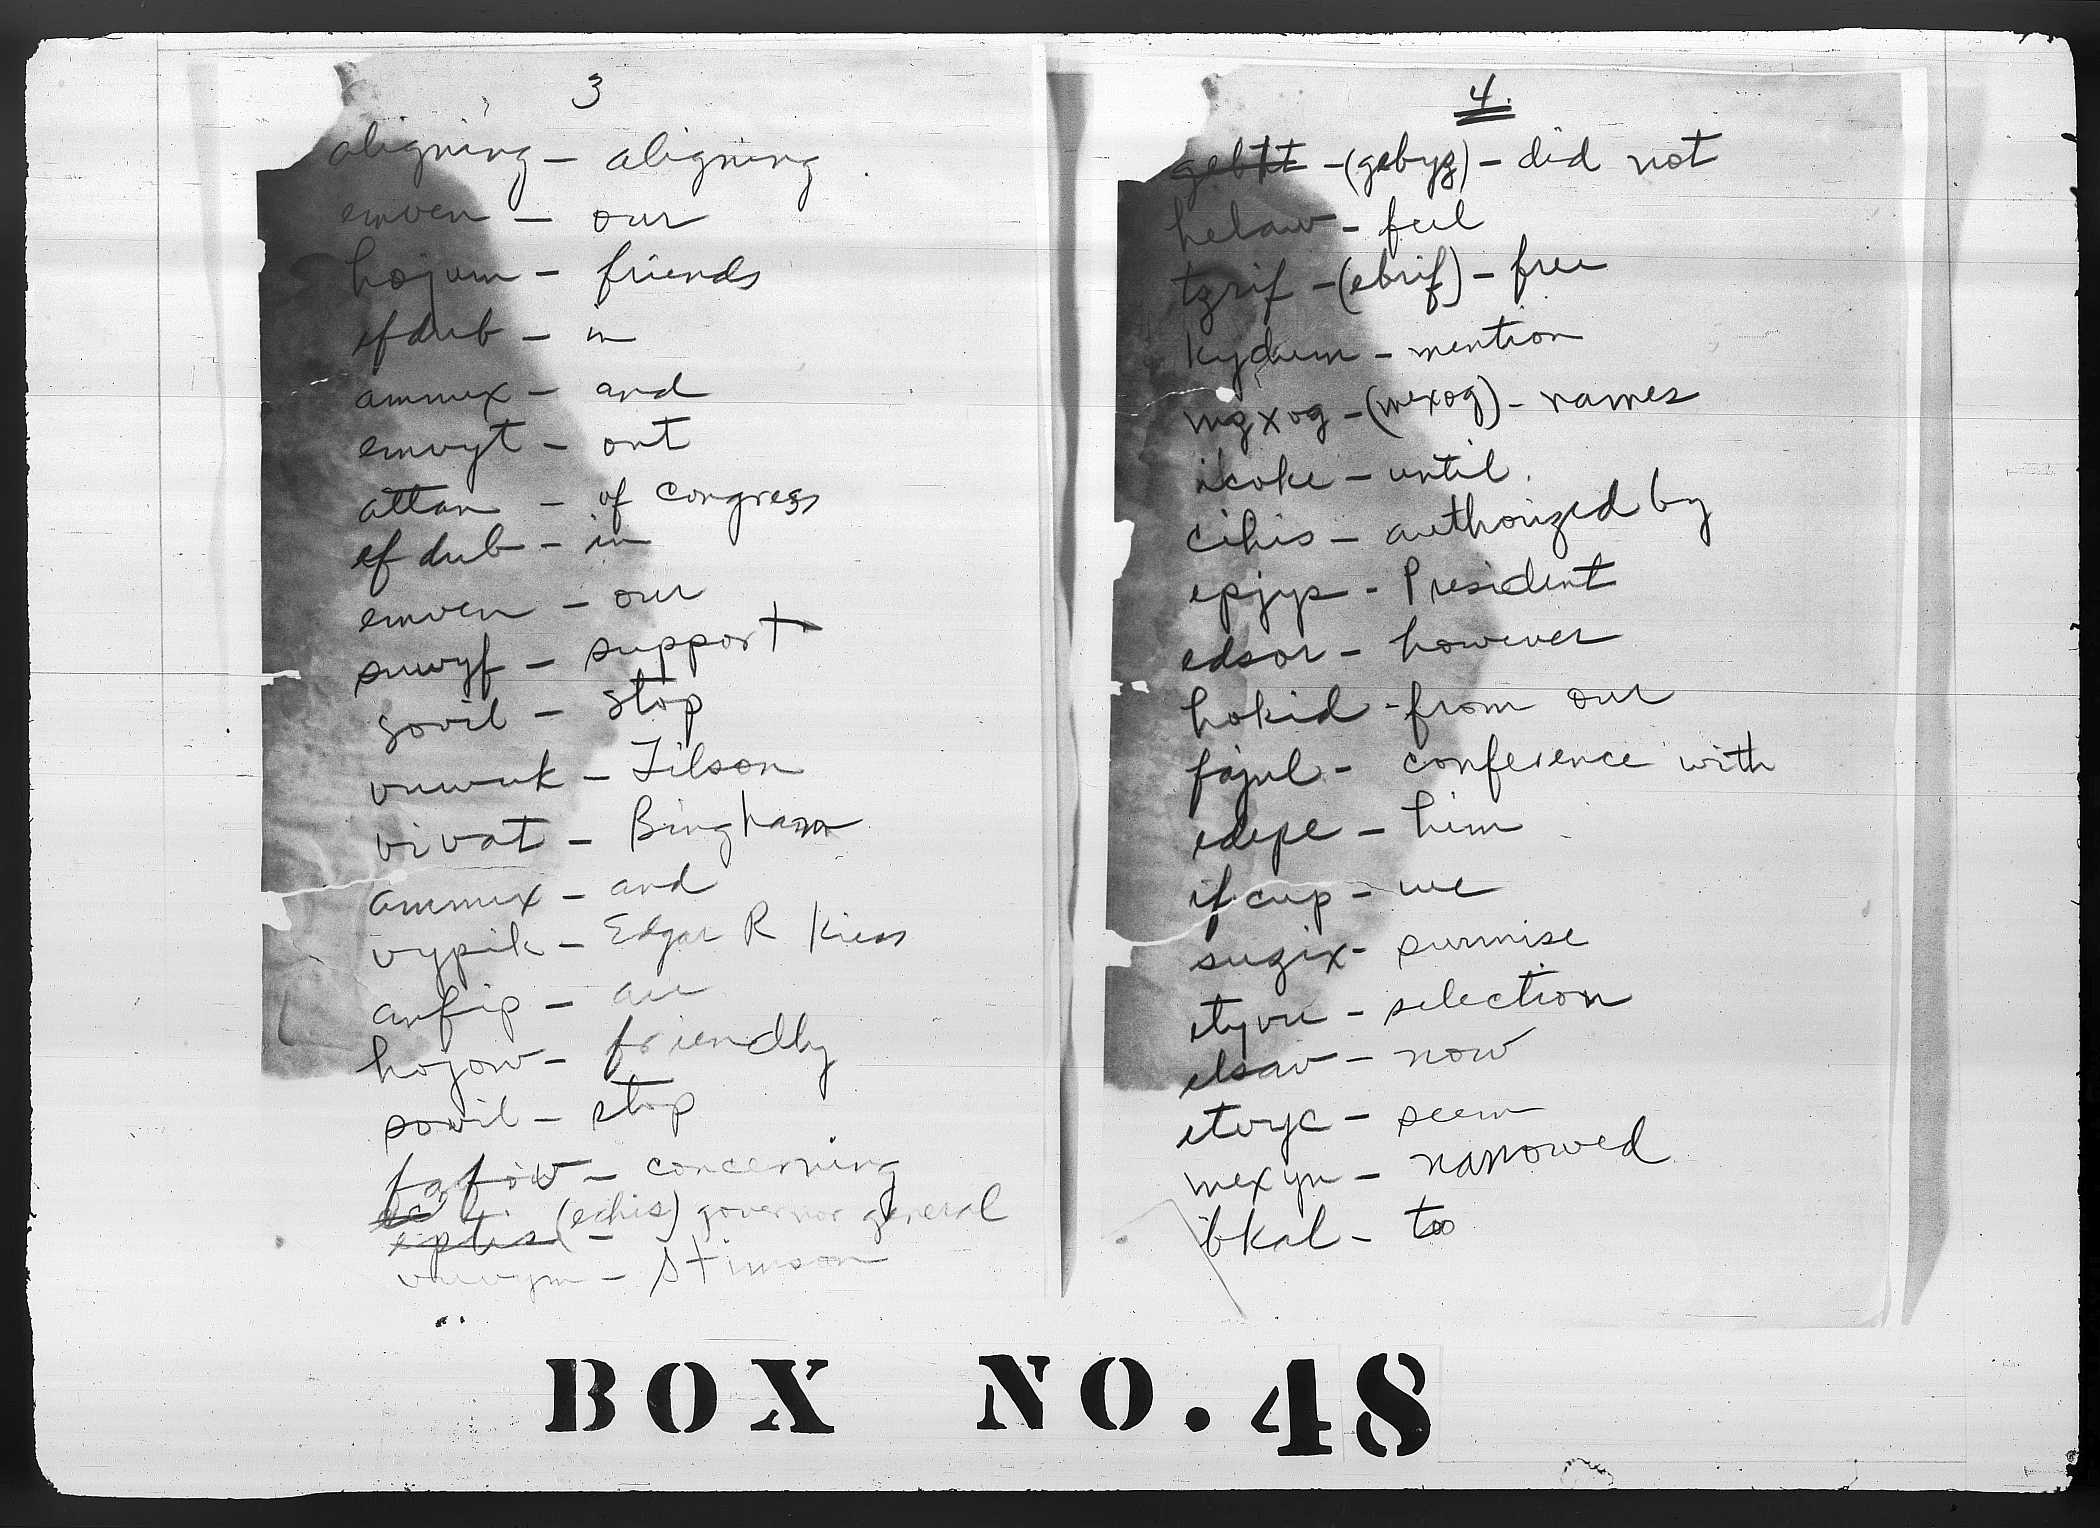 3
aligning - aligning
emven - our
hojum - friends
efdub - in
ammux - and
emvyt - out
attan - of congress
efdub - in
emven - our
suwyf - support
sovil - stop
vuwuk - Tilson
vivat - Bingham
ammux - and
vypik - Edgar R Kiess
anfip - are
hojow - friendly
sovil - stop
fafow - concerning
(echis) - governor general
vuvym - Stimson
4.
gebtt - (gebyz) - did not
helaw - feel
tzrif - (ebrif) - free
kydum - mention
mgxog - (mexog) - names
ikoke - until
cihis - authorized by
epjyp - President
edsor - however
hokid - from our
fajul - conference with
edepe - him
ifcup - we
sugix - surmise
etyvu - selection
elsav - now
etvyc - seem
mexyn - narrowed
ibkal - to
BOX NO. 48